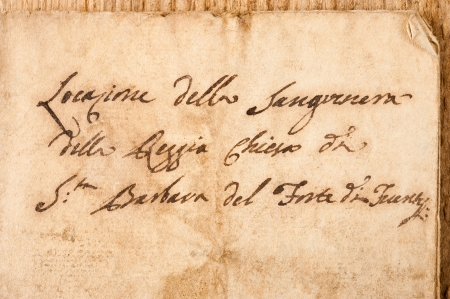 Locazione della Sanguinera
della Reggia Chiesa di
S.ta Barbara del Forte di Fuentes